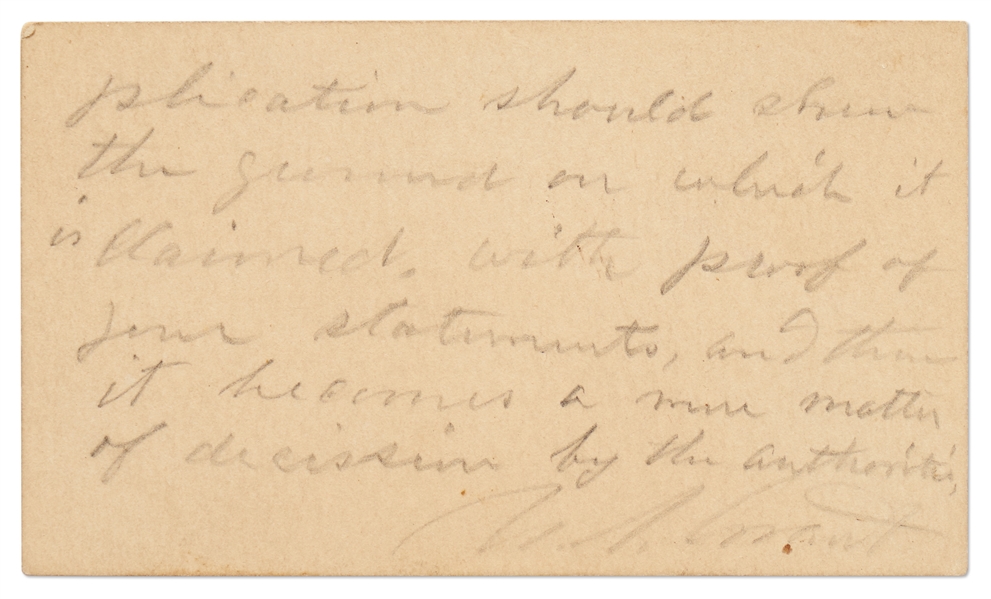 plication should show
the ground on which it
is claimed, with proof of
your statements, and then
it becomes a mere matter
of decission by the authorities,
U. S. Grant